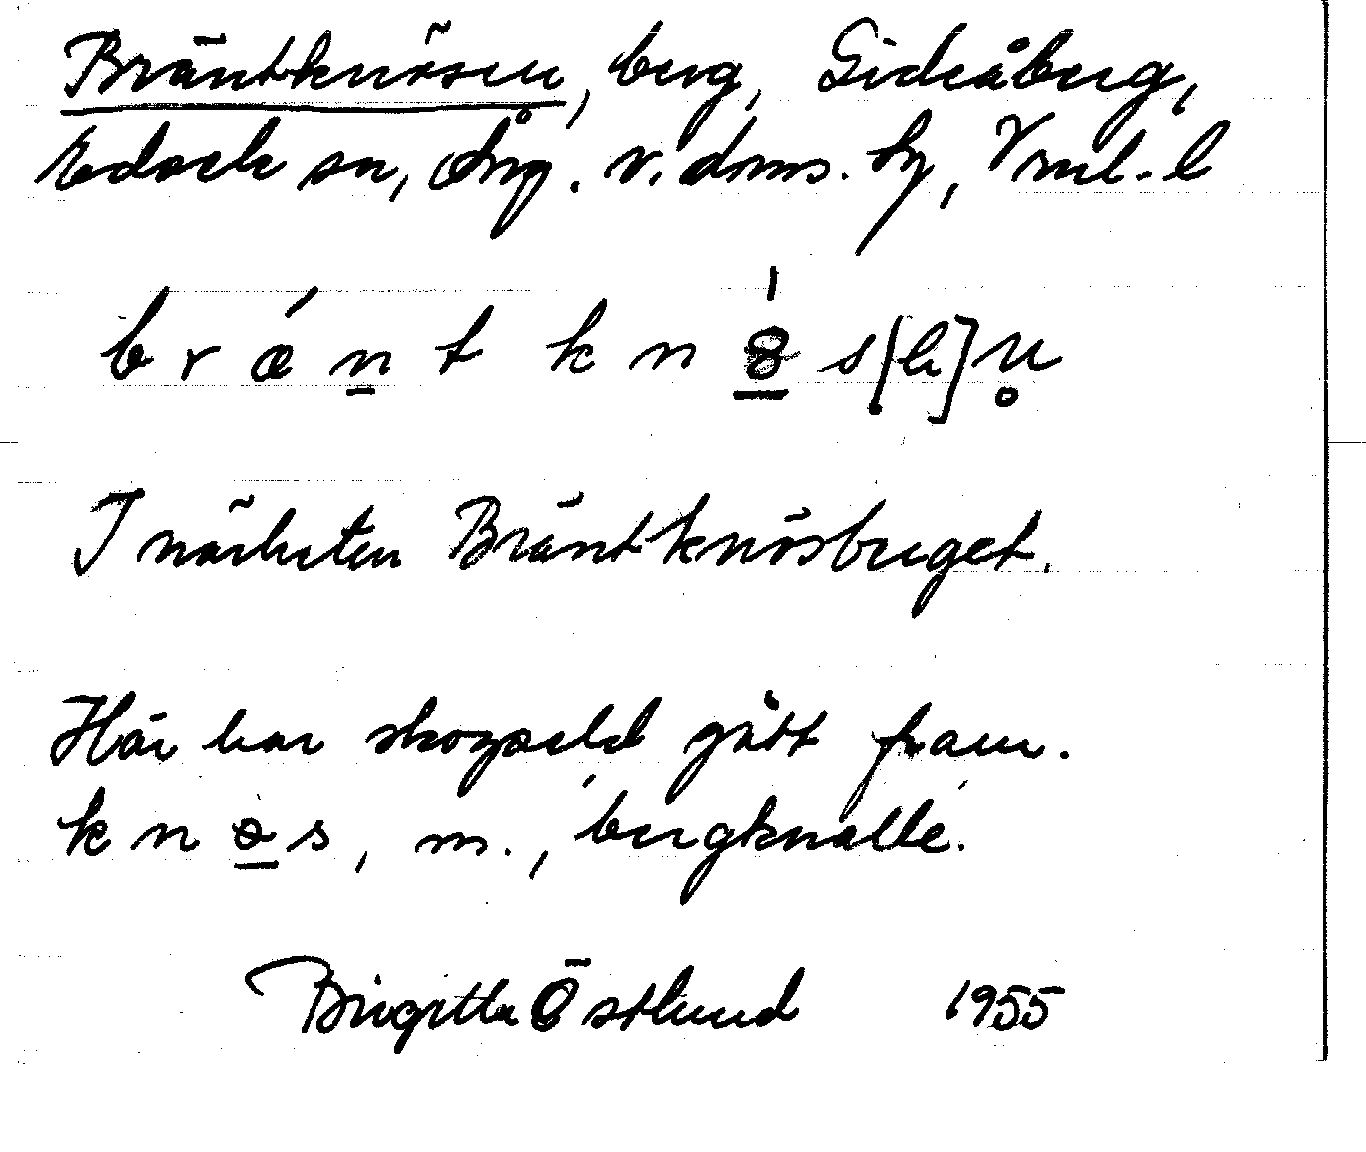 Bräntknösen, berg, Gideåberg,
Edsele sn, Ång. v. dms. hg, Vml. l
b r æ n t k n ö s [h] n
I närheten Bräntknösberget.
Här har skogseld gått fram.
k n ö s, m., bergknalle.
Birgitta Östlund 1955